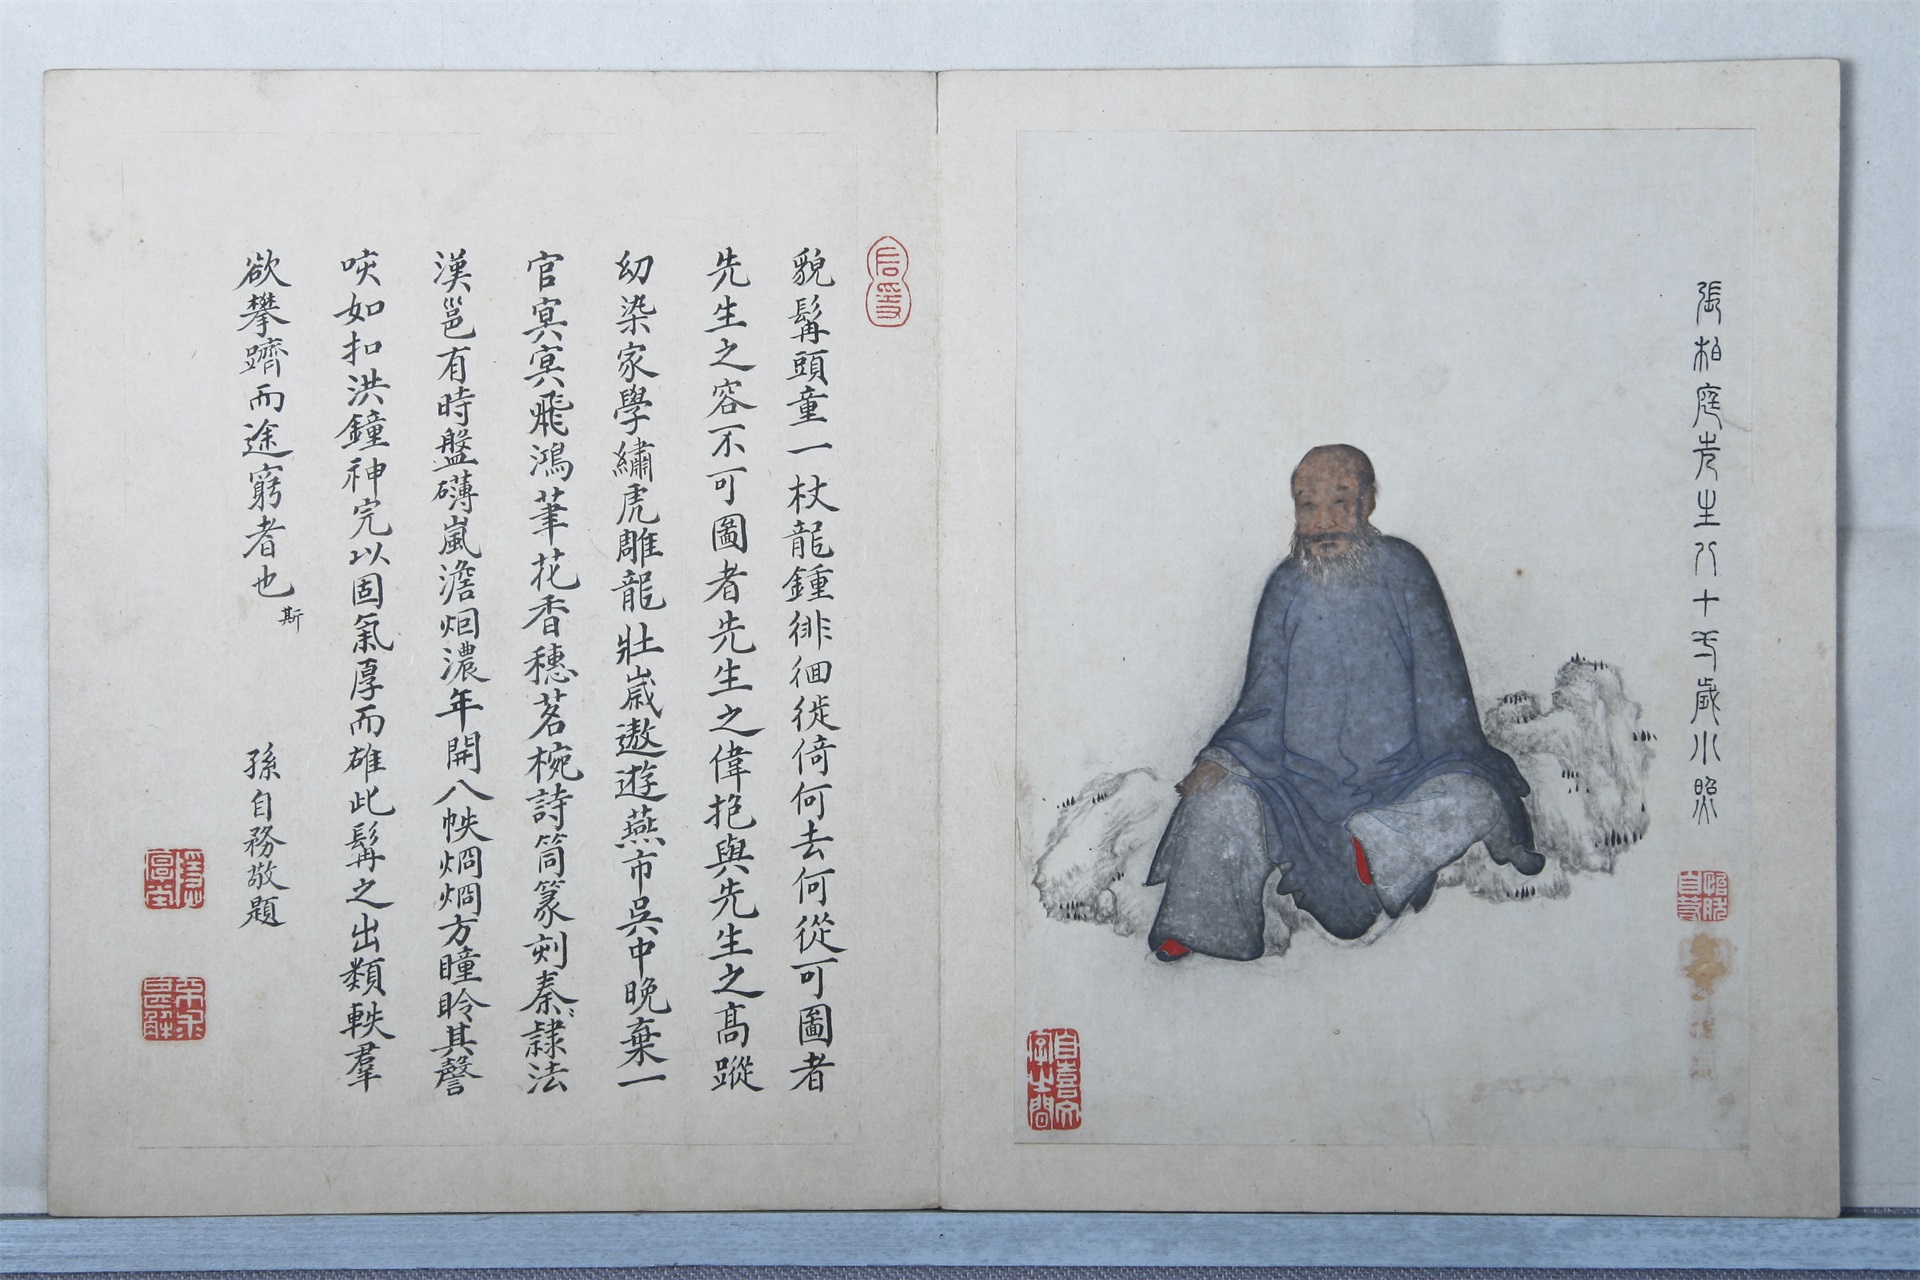 張柏庭先生八十五歲小照
貌髯頭童一杖龍鍾徘徊徙倚何去何從可圖者
先生之容不可圖者先生之偉抱與先生之高蹤
幼染家學繡虎雕龍壯歲遨遊燕市吳中晚棄一
官冥冥飛鴻筆花香穗茗椀詩筒篆刻秦〻隸法
漢邕有時盤礴嵐澹烟濃年開八帙烱烱方瞳聆其謦
咳如扣洪鐘神完以固氣厚而雄此髯之出類軼羣
欲攀躋而途窮者也斯
孫自務敬題